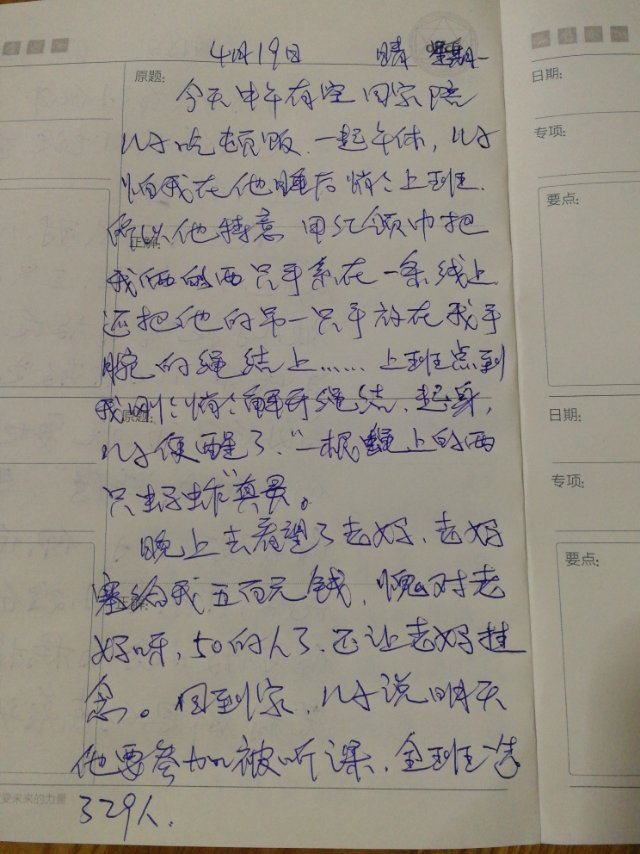 4月19日 晴 星期一
原题:
今天中午有空回家陪
儿子吃顿饭、一起午休,儿子
怕我在他睡后悄悄上班、
所以他特意用红领巾把
正解:
我俩的两只手系在一条线上
还把他的另一只手放在我手
腕的绳结上……上班点到
我刚悄悄解开绳结、起身,
原题:
儿子便醒了、"一根绳上的两
只蚂蚱"真灵。
晚上去看望了老妈、老妈
塞给我五百元钱、愧对老
正解:
妈呀,50的人了、还让老妈挂
念。回到家、儿子说明天
他要参加被听课、全班选
329人、
变未来的力量
日期:
专项:
要点:
日期:
专项:
要点: